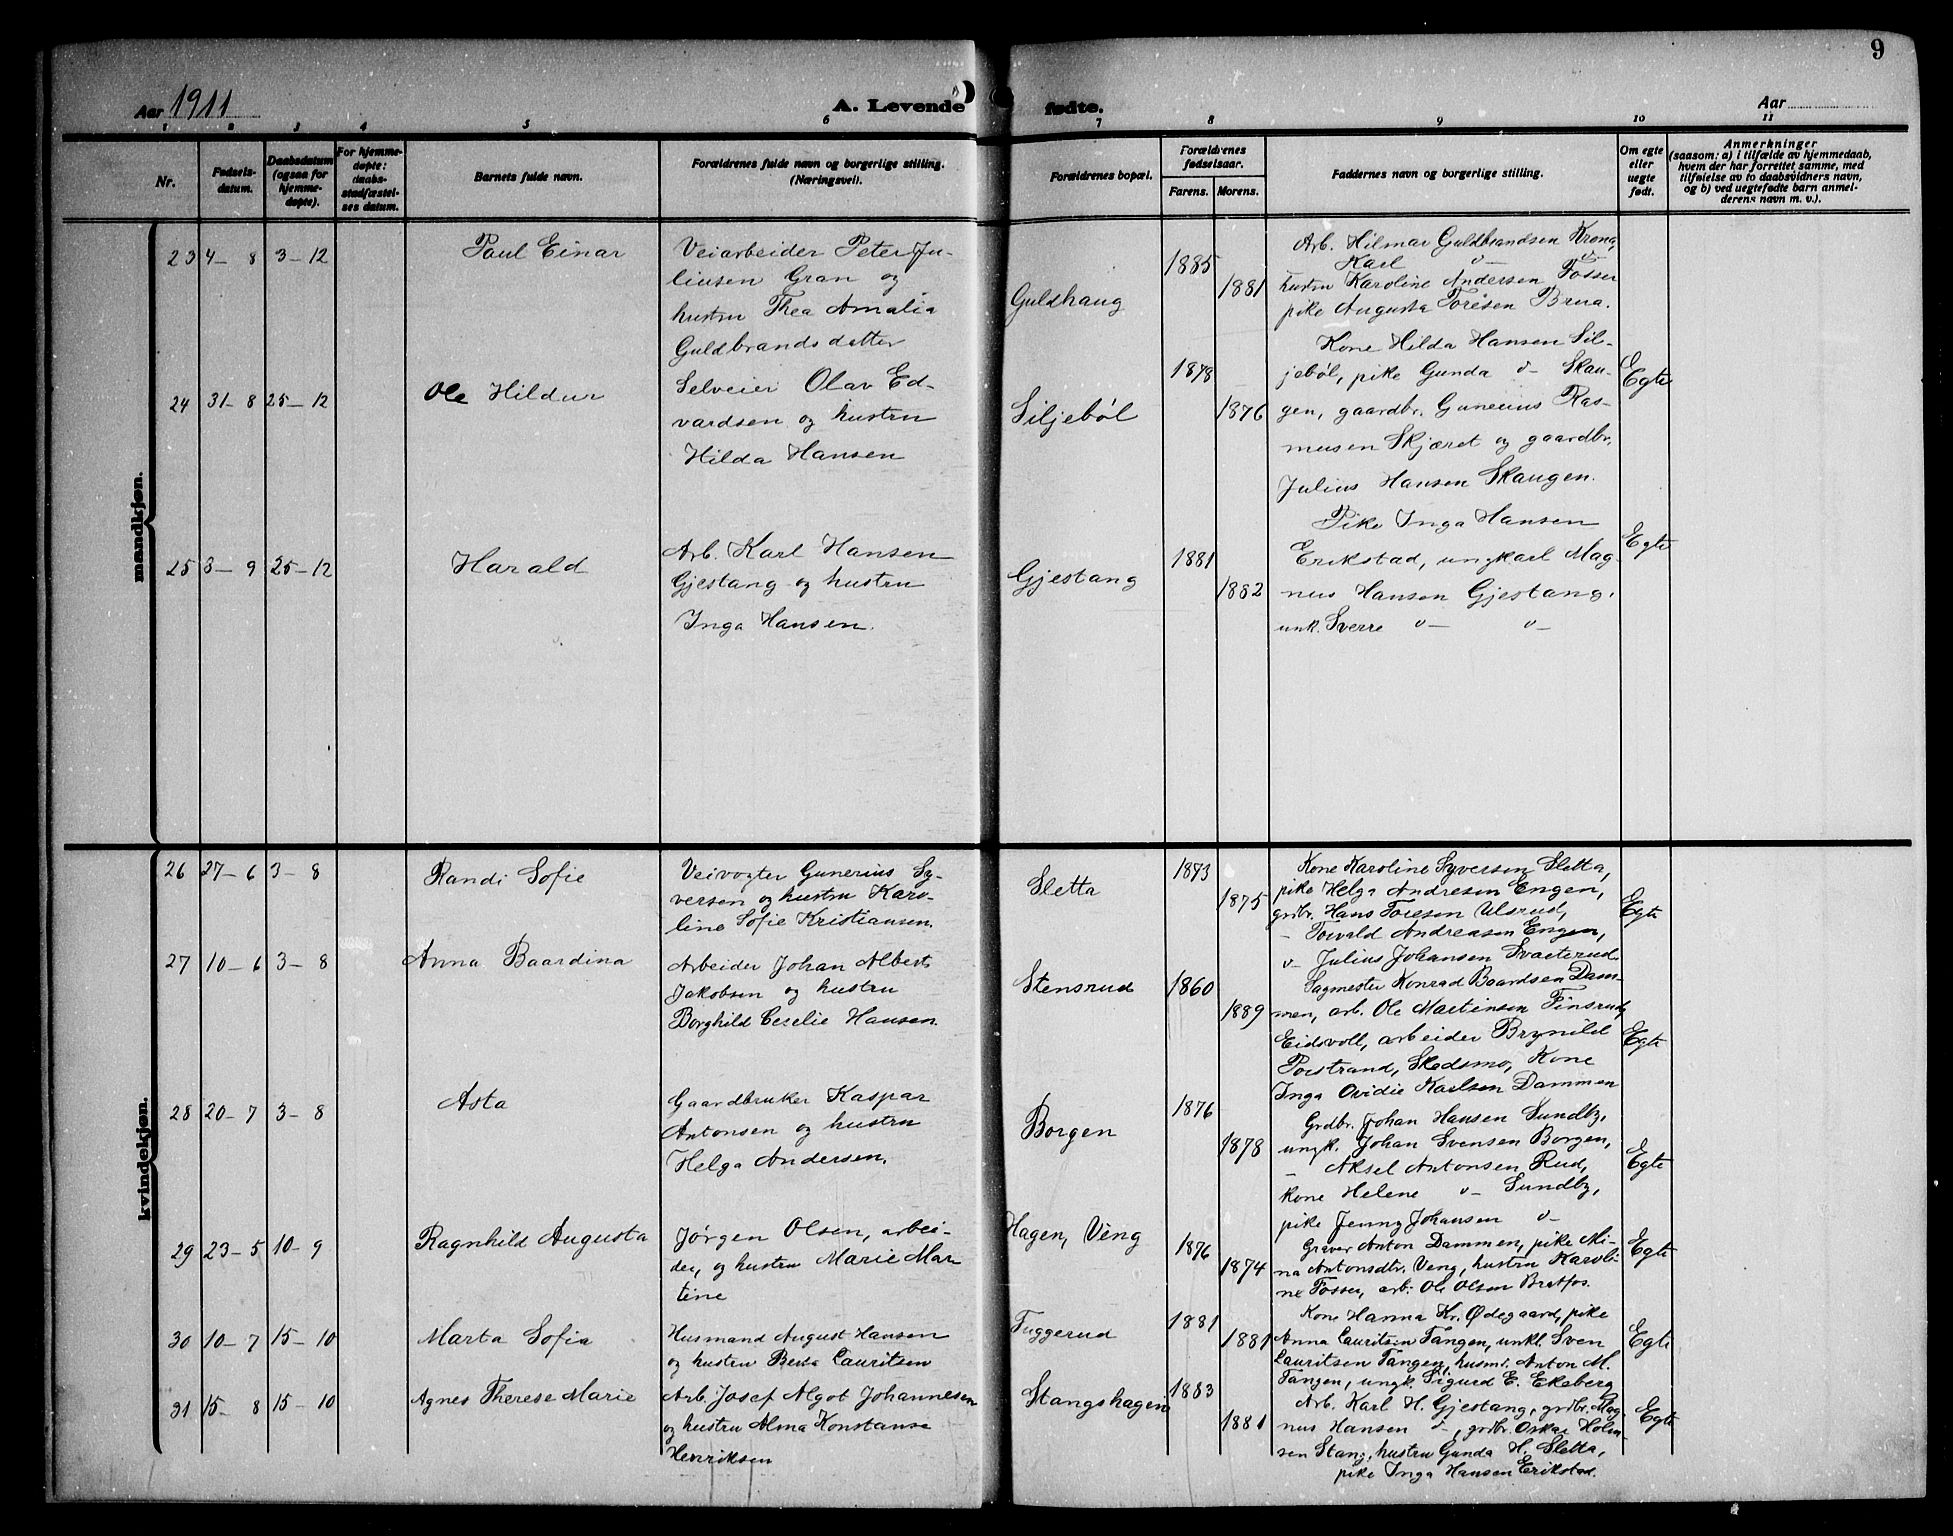 9
Aar 1911
A. Levende fødte.
Aar
1 2 3 4 5 6 7 8 9 10 11
Nr.
Fødsels-
datum.
Daabsdatum
(ogsaa for
hjemme-
døpte).
For hjemme-
døpte:
daabs-
stadfæstel-
ses datum.
Barnets fulde navn.
Forældrenes fulde navn og borgerlige stilling.
(Næringsvei).
Forældrenes bopæl.
Forældrenes
fødselsaar.
Farens. Morens.
Faddernes navn og borgerlige stilling.
Om egte
eller
uegte
født.
Anmerkninger
(saasom: a) i tilfælde av hjemmedaab,
hvem der har forrettet samme, med
tilføielse av to daabsvidners navn,
og b) ved uegtefødte barn anmel-
derens navn m. v.).
mandkjøn.
23 4–8 3–12 Paul Einar
Veiarbeider Peter Ju-
liusen Gran og
hustru Thea Amalia
Guldbrandsdatter
Guldhaug
1885
1881
Arb. Hilmar Guldbrandsen Krona,
Karl –"– –"–
hustru Karoline Andersen Fosser
pike Augusta Toresen Brua.
24 31–8 25–12 Ole Hildur
Selveier Olav Ed-
vardsen og hustru
Hilda Hansen
Siljebøl
1878
1876
Kone Hilda Hansen Sil-
jebøl, pike Gunda –"– Skau-
gen, gaardbr. Gunerius Ras-
musen Skjæret og gaardbr.
Julius Hansen Skaugen.
Egte
25 3–9 25–12 Harald
Arb. Karl Hansen
Gjestang og hustru
Inga Hansen.
Gjestang
1881
1882
Pike Inga Hansen
Erikstad, ungkarl Mag-
nus Hansen Gjestang,
unk. Sverre –"– –"–
Egte
kvindekjøn.
26 27–6 3–8 Randi Sofie
Veivogter Gunerius Sy-
versen og hustru Karo-
line Sofie Kristiansen.
Sletta
1873
1875
Kone Karoline Syversen Sletta,
pike Helga Andresen Engen,
grdbr. Hans Toresen Ulsrud,
– Torvald Andreasen Engen,
–"– Julius Johansen Svarterud
Egte
27 10–6 3–8 Anna Baardina
Arbeider Johan Albert
Jakobsen og hustru
Borghild Cecelie Hansen.
Stensrud
1860
1889
Sagmester Konrad Baardsen Dam-
men, arb. Ole Martinsen Finsrud,
Eidsvoll, arbeider Brynild
Porstrand, Skedsmo, Kone
Inga Ovidie Karlsen Dammen
Egte
28 20–7 3–8 Asta
Gaardbruker Kaspar
Antonsen og hustru
Helga Andersen.
Borgen
1876
1878
Grdbr. Johan Hansen Sundby,
ungk. Johan Svensen Borgen,
– Aksel Antonsen Rud,
kone Helene –"– Sundby,
pike Jenny Johansen –"–
Egte
29 23–5 10–9 Ragnhild Augusta
Jørgen Olsen, arbei-
der, og hustru Marie Mar-
tine
Hagen, Veng
1876
1874
Graver Anton Dammen, pike Mi-
na Antonsdtr. Veng, hustru Karoli-
ne Fosser, arb. Ole Olsen Bratfos.
Egte
30 10–7 15–10 Marta Sofia
Husmand August Hansen
og hustru Berta Lauritsen
Tuggerud
1881
1881
Kone Hanna Kr. Ødegaard, pike
Anna Lauritsen Tangen, unkl. Sven
Lauritsen Tangen, husm. Anton M.
Tangen, ungk. Sigurd E. Ekeberg
Egte
31 15–8 15–10 Agnes Therese Marie
Arb. Josef Algot Johannesen
og hustru Alma Konstanse
Henriksen
Stangshagen
1883
1881
Arb. Karl H. Gjestang, grdbr. Mag-
nus Hansen –"–, grdbr. Oskar Holm-
sen Stang, hustru Gunda H. Sletta,
pike Inga Hansen Erikstad.
Egte